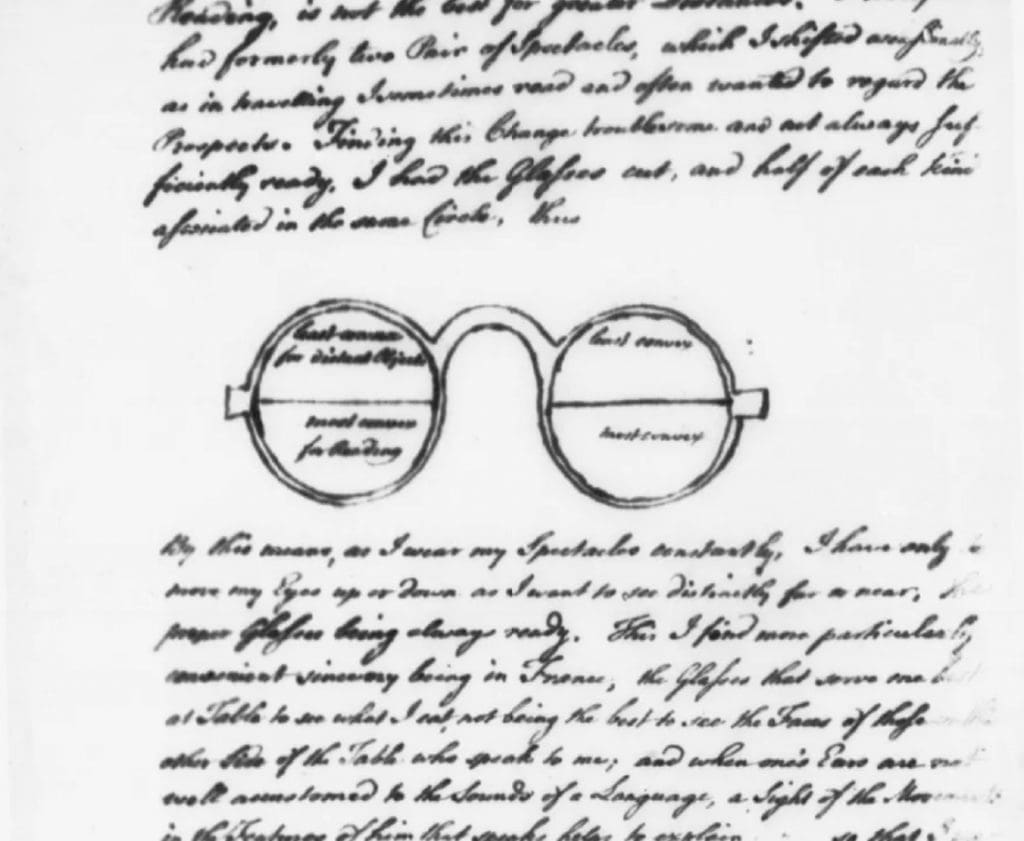 Reading, is not the best for greater Distances.
had formerly two Pair of Spectacles, which I shifted occasionally,
as in travelling I sometimes read and often wanted to regard the
Prospects. Finding this Change troublesome and not always suf-
ficiently ready, I had the Glasses cut, and half of each kind
associated in the same Circle, thus
least convex
for distant Objects
most convex
for Reading
least convex
most convex
By this means, as I wear my Spectacles constantly, I have only
move my Eyes up or down as I want to see distinctly far or near, the
proper Glasses being always ready. This I find more particularly
convenient since my being in France, the Glasses that serve me best
at Table to see what I eat, not being the best to see the Faces of those
other Side of the Table who speak to me; and when one's Ears are not
well accustomed to the Sounds of a Language, a Sight of the Movements
in the Features of him that speaks helps to explain so that I